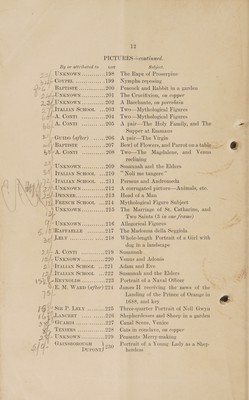 12
PICTURES—continued.
By or attributed to LOT Subject.
UNKNOWN 198 The Rape of Proserpine
COYPEL 199 Nymphs reposing
BAPTISTE 200 Peacock and Rabbit in a garden
UNKNOWN 201 The Crucifixion, on copper
UNKNOWN 202 A Bacchante, on porcelain
ITALIAN SCHOOL 203 Two—Mythological Figures
A. CONTI 204 Two—Mythological Figures
A. CONTI 205 A pair—The Holy Family, and The Supper at Emmaus
GUIDO (after) 206 A pair—The Virgin
BAPTISTE 207 Bowl of Flowers, and Parrot on a table
A. CONTI 208 Two—The Magdalene, and Venus reclining
UNKNOWN 209 Susannah and the Elders
ITALIAN SCHOOL 210 "Noli me tangere"
ITALIAN SCHOOL 211 Perseus and Andromeda
UNKNOWN 212 A corrugated picture—Animals, etc.
DENNER 213 Head of a Man
FRENCH SCHOOL 214 Mythological Figure Subject
UNKNOWN 215 The Marriage of St. Catharine, and Two Saints (3 in one frame)
UNKNOWN 216 Allegorical Figures
RAFFAELLE 217 The Madonna della Seggiola
LELY 218 Whole-length Portrait of a Girl with dog in a landscape
A. CONTI 219 Susannah
UNKNOWN 220 Venus and Adonis
ITALIAN SCHOOL 221 Adam and Eve
ITALIAN SCHOOL 222 Susannah and the Elders
REYNOLDS 223 Portrait of a Naval Officer
E. M. WARD (after) 224 James II receiving the news of the Landing of the Prince of Orange in 1688, and key
SIR P. LELY 225 Three-quarter Portrait of Nell Gwyn
LANCRET 226 Shepherdesses and Sheep in a garden
GUARDI 227 Canal Scene, Venice
TENIERS 228 Cats in conclave, on copper
UNKNOWN 229 Peasants Merry-making
GAINSBOROUGH DUPONT 230 Portrait of a Young Lady as a Shepherdess